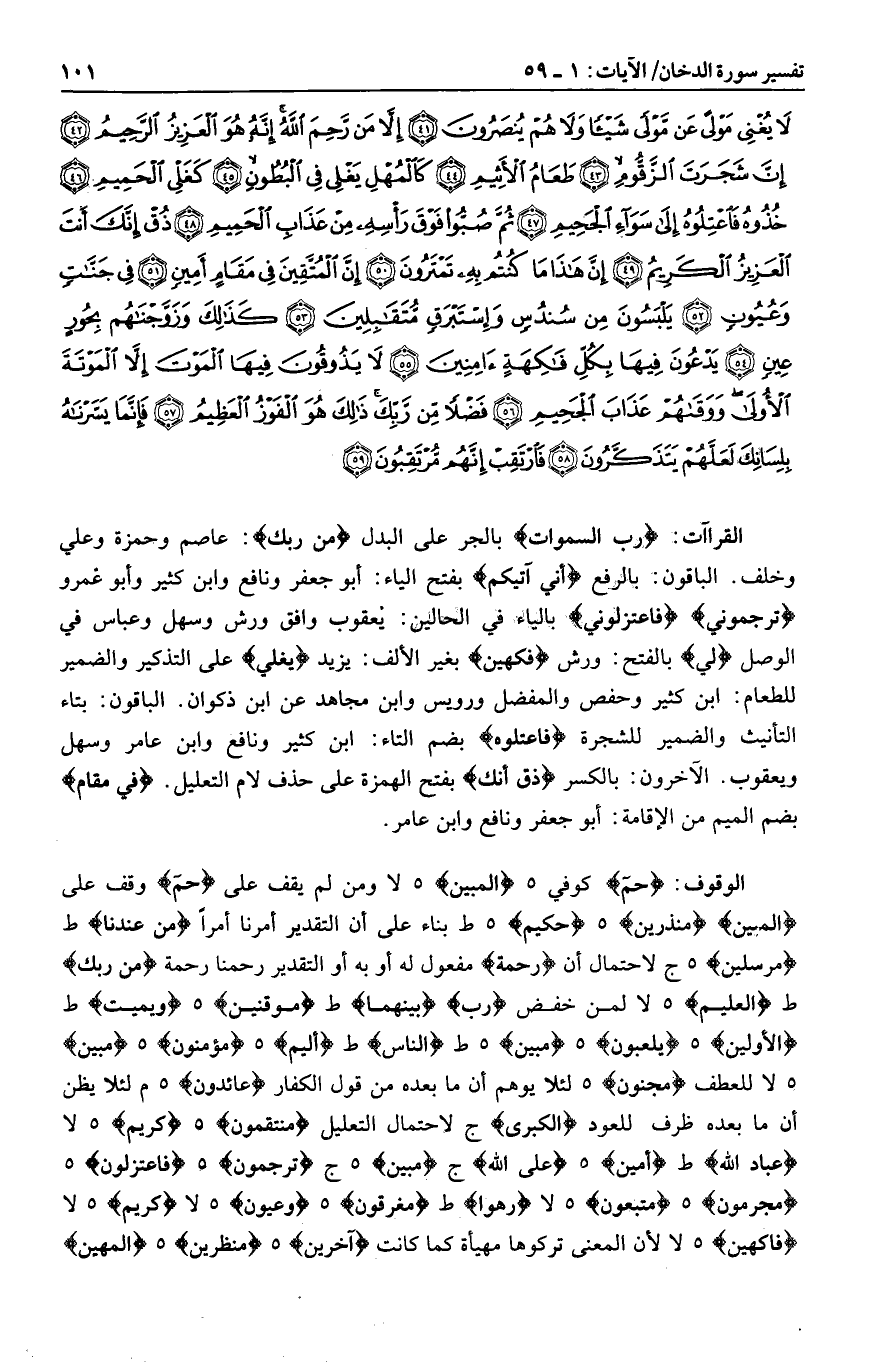 تفسير سورة الدخان/ الآيات: ١ - ٥٩ ١٠١
لَا يُغْنِي مَوْلًى عَن مَّوْلًى شَيْـًٔا وَلَا هُمْ يُنصَرُونَ ﴿٤١﴾ إِلَّا مَن رَّحِمَ ٱللَّهُ ۚ إِنَّهُۥ هُوَ ٱلْعَزِيزُ ٱلرَّحِيمُ ﴿٤٢﴾
إِنَّ شَجَرَتَ ٱلزَّقُّومِ ﴿٤٣﴾ طَعَامُ ٱلْأَثِيمِ ﴿٤٤﴾ كَٱلْمُهْلِ يَغْلِي فِي ٱلْبُطُونِ ﴿٤٥﴾ كَغَلْيِ ٱلْحَمِيمِ ﴿٤٦﴾
خُذُوهُ فَٱعْتِلُوهُ إِلَىٰ سَوَآءِ ٱلْجَحِيمِ ﴿٤٧﴾ ثُمَّ صُبُّوا۟ فَوْقَ رَأْسِهِۦ مِنْ عَذَابِ ٱلْحَمِيمِ ﴿٤٨﴾ ذُقْ إِنَّكَ أَنتَ
ٱلْعَزِيزُ ٱلْكَرِيمُ ﴿٤٩﴾ إِنَّ هَٰذَا مَا كُنتُم بِهِۦ تَمْتَرُونَ ﴿٥٠﴾ إِنَّ ٱلْمُتَّقِينَ فِي مَقَامٍ أَمِينٍ ﴿٥١﴾ فِي جَنَّٰتٍ
وَعُيُونٍ ﴿٥٢﴾ يَلْبَسُونَ مِن سُندُسٍ وَإِسْتَبْرَقٍ مُّتَقَٰبِلِينَ ﴿٥٣﴾ كَذَٰلِكَ وَزَوَّجْنَٰهُم بِحُورٍ
عِينٍ ﴿٥٤﴾ يَدْعُونَ فِيهَا بِكُلِّ فَٰكِهَةٍ ءَامِنِينَ ﴿٥٥﴾ لَا يَذُوقُونَ فِيهَا ٱلْمَوْتَ إِلَّا ٱلْمَوْتَةَ
ٱلْأُولَىٰ ۖ وَوَقَىٰهُمْ عَذَابَ ٱلْجَحِيمِ ﴿٥٦﴾ فَضْلًا مِّن رَّبِّكَ ۚ ذَٰلِكَ هُوَ ٱلْفَوْزُ ٱلْعَظِيمُ ﴿٥٧﴾ فَإِنَّمَا يَسَّرْنَٰهُ
بِلِسَانِكَ لَعَلَّهُمْ يَتَذَكَّرُونَ ﴿٥٨﴾ فَٱرْتَقِبْ إِنَّهُم مُّرْتَقِبُونَ ﴿٥٩﴾
القراآت: ﴿رب السموات﴾ بالجر على البدل ﴿من ربك﴾: عاصم وحمزة وعلي
وخلف. الباقون: بالرفع ﴿أني آتيكم﴾ بفتح الياء: أبو جعفر ونافع وابن كثير وأبو عمرو
﴿ترجموني﴾ ﴿فاعتزلوني﴾ بالياء في الحالين: يعقوب وافق ورش وسهل وعباس في
الوصل ﴿لي﴾ بالفتح: ورش ﴿فكهين﴾ بغير الألف: يزيد ﴿يغلي﴾ على التذكير والضمير
للطعام: ابن كثير وحفص والمفضل ورويس وابن مجاهد عن ابن ذكوان. الباقون: بتاء
التأنيث والضمير للشجرة ﴿فاعتلوه﴾ بضم التاء: ابن كثير ونافع وابن عامر وسهل
ويعقوب. الآخرون: بالكسر ﴿ذق أنك﴾ بفتح الهمزة على حذف لام التعليل. ﴿في مقام﴾
بضم الميم من الإقامة: أبو جعفر ونافع وابن عامر.
الوقوف: ﴿حمّ﴾ كوفي ٥ ﴿المبين﴾ ٥ لا ومن لم يقف على ﴿حمّ﴾ وقف على
﴿المبين﴾ ﴿منذرين﴾ ٥ ﴿حكيم﴾ ٥ ط بناء على أن التقدير أمرنا أمراً ﴿من عندنا﴾ ط
﴿مرسلين﴾ ٥ ج لاحتمال أن ﴿رحمة﴾ مفعول له أو به أو التقدير رحمنا رحمة ﴿من ربك﴾
ط ﴿العليم﴾ ٥ لا لمن خفض ﴿رب﴾ ﴿بينهما﴾ ط ﴿موقنين﴾ ٥ ﴿ويميت﴾ ط
﴿الأولين﴾ ٥ ﴿يلعبون﴾ ٥ ﴿مبين﴾ ٥ ط ﴿الناس﴾ ط ﴿أليم﴾ ٥ ﴿مؤمنون﴾ ٥ ﴿مبين﴾
٥ لا للعطف ﴿مجنون﴾ ٥ لئلا يوهم أن ما بعده من قول الكفار ﴿عائدون﴾ ٥ م لئلا يظن
أن ما بعده ظرف للعود ﴿الكبرى﴾ ج لاحتمال التعليل ﴿منتقمون﴾ ٥ ﴿كريم﴾ ٥ لا
﴿عباد الله﴾ ط ﴿أمين﴾ ٥ ﴿على الله﴾ ج ﴿مبين﴾ ٥ ج ﴿ترجمون﴾ ٥ ﴿فاعتزلون﴾ ٥
﴿مجرمون﴾ ٥ ﴿متبعون﴾ ٥ لا ﴿رهوا﴾ ط ﴿مغرقون﴾ ٥ ﴿وعيون﴾ ٥ لا ﴿كريم﴾ ٥ لا
﴿فاكهين﴾ ٥ لا لأن المعنى تركوها مهيأة كما كانت ﴿آخرين﴾ ٥ ﴿منظرين﴾ ٥ ﴿المهين﴾